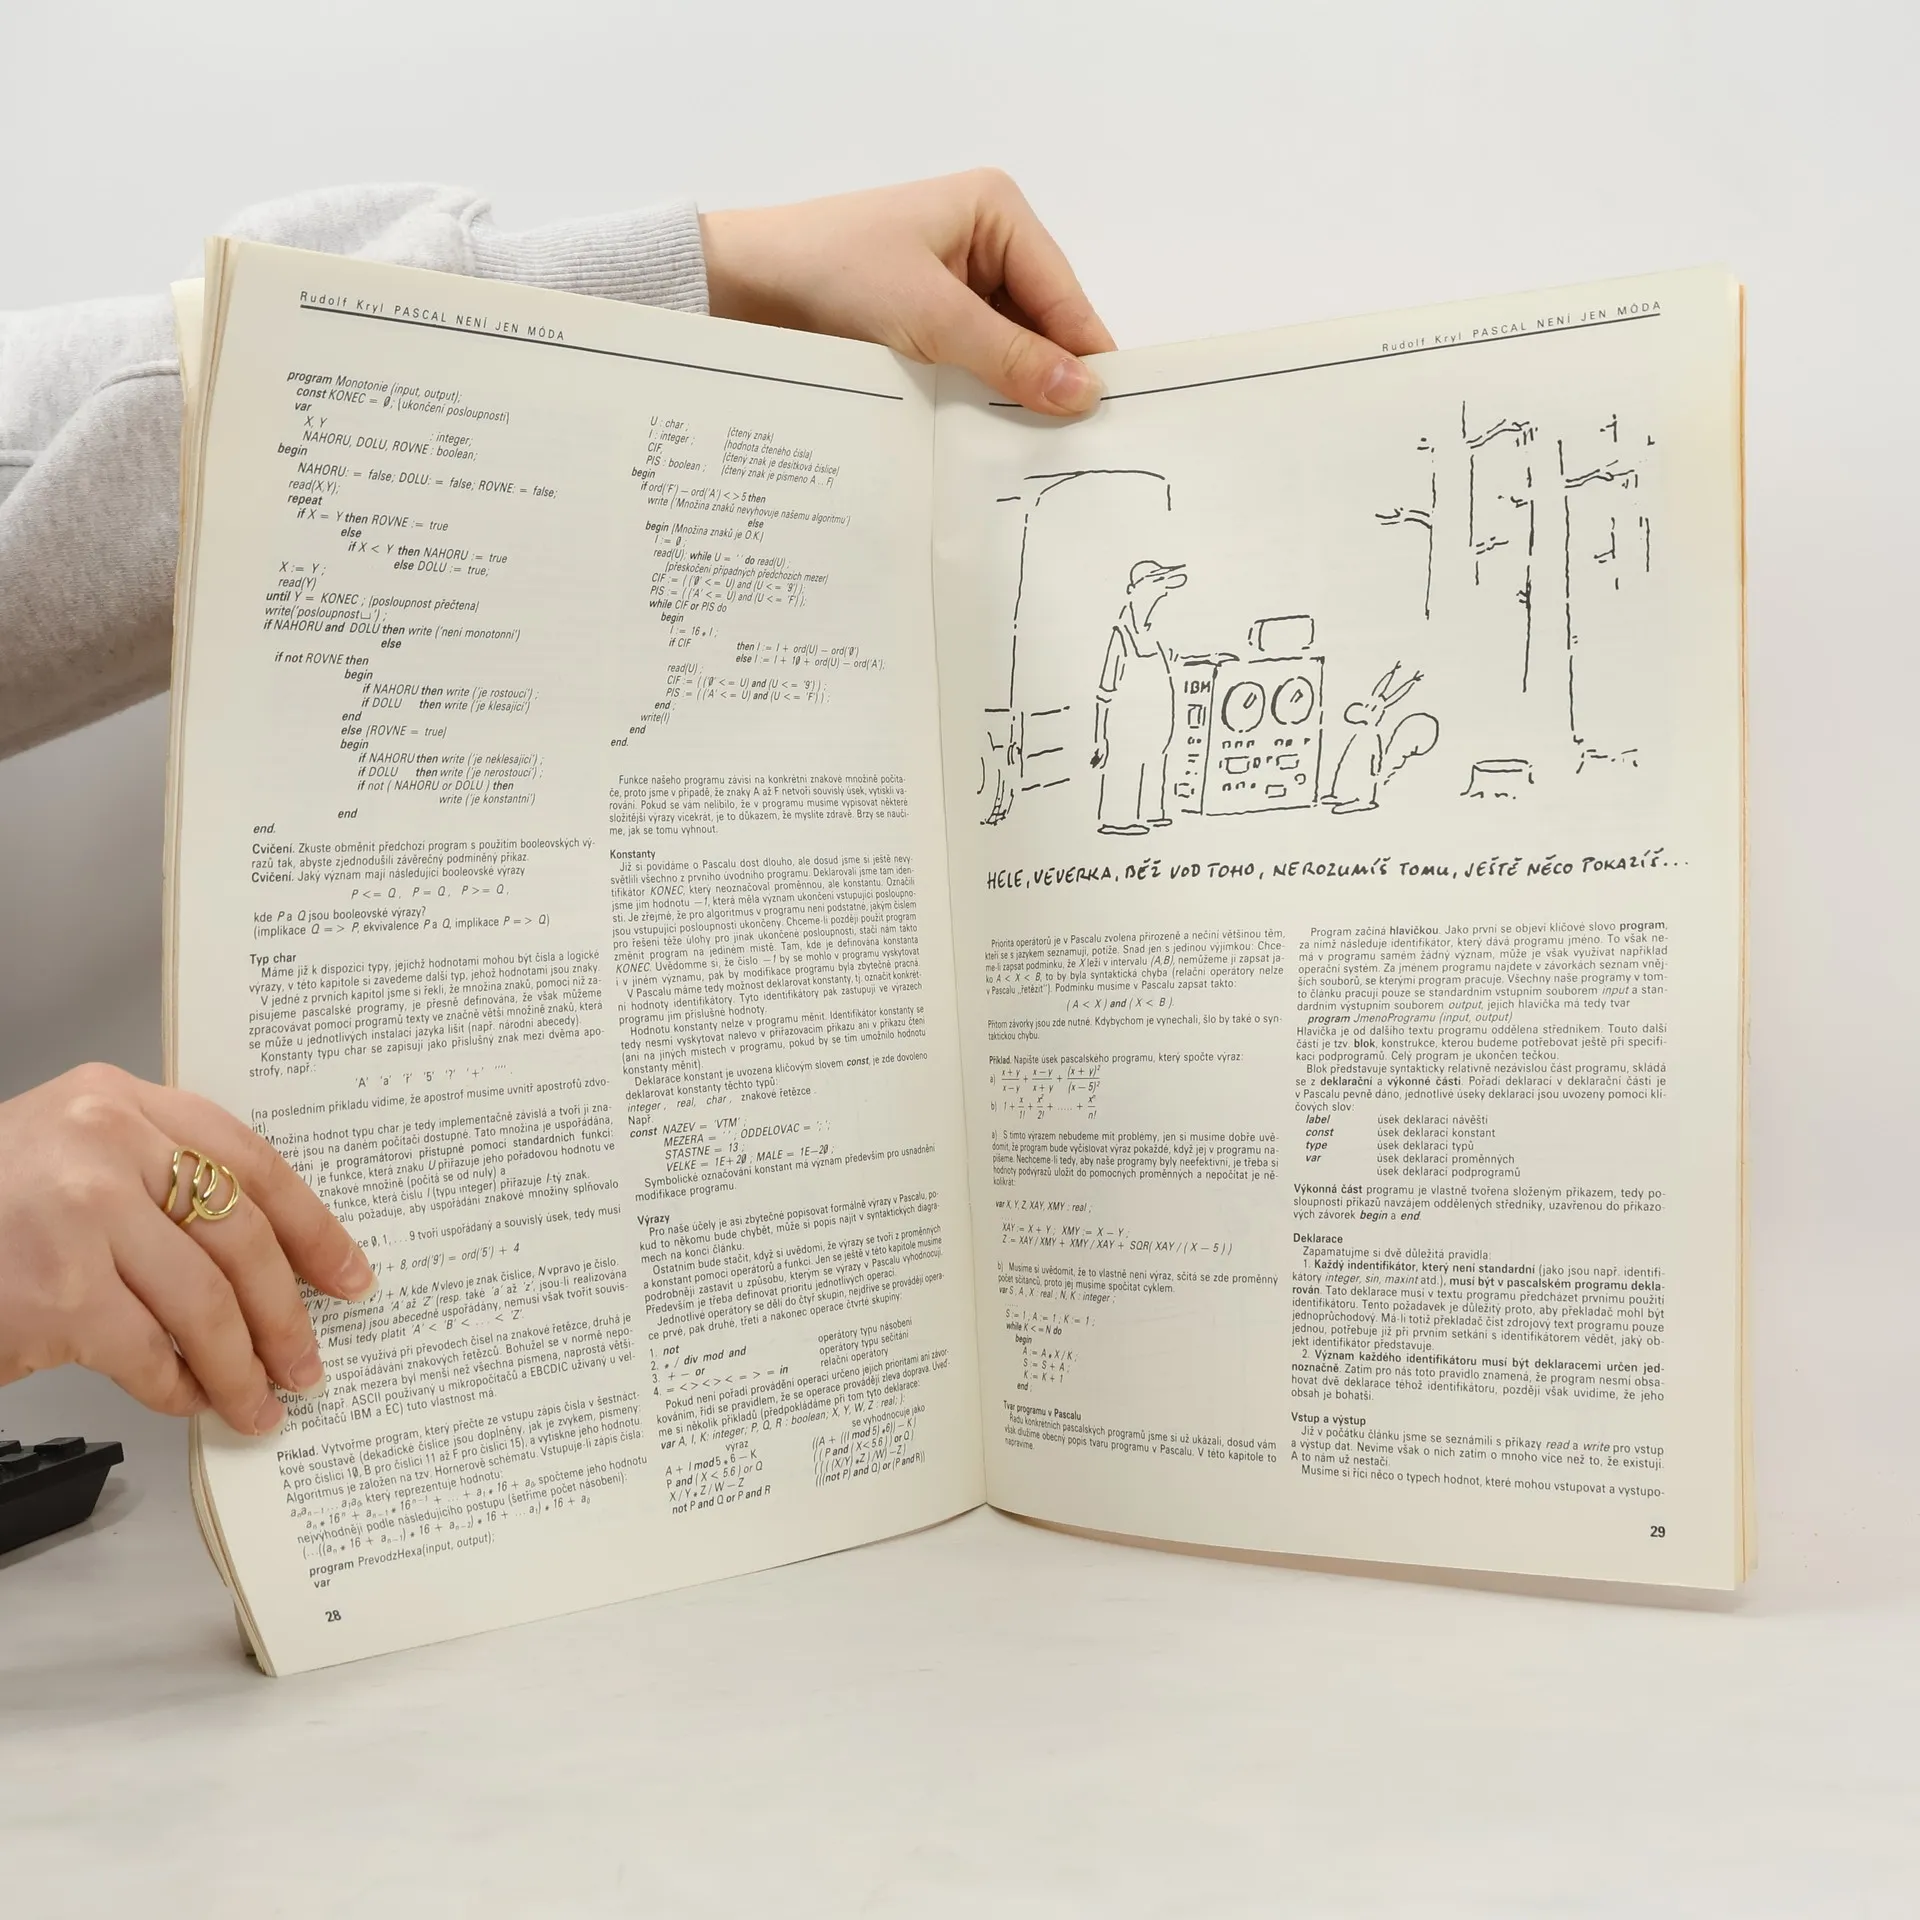 Rudolf Kryl PASCAL NENÍ JEN MÓDA
program Monotonie (input, output);
const KONEC = 0; {ukončení posloupnosti}
var
X, Y
: integer;
NAHORU, DOLU, ROVNE : boolean;
begin
NAHORU: = false; DOLU: = false; ROVNE: = false;
read(X,Y);
repeat
if X = Y then ROVNE := true
else
if X < Y then NAHORU := true
else DOLU := true;
X := Y ;
read(Y)
until Y = KONEC ; {posloupnost přečtena}
write('posloupnost⌴') ;
if NAHORU and DOLU then write ('není monotonní')
else
if not ROVNE then
begin
if NAHORU then write ('je rostoucí') ;
if DOLU then write ('je klesající')
end
else {ROVNE = true}
begin
if NAHORU then write ('je neklesající') ;
if DOLU then write ('je nerostoucí') ;
if not ( NAHORU or DOLU ) then
write ('je konstantní')
end
end.
Cvičení. Zkuste obměnit předchozí program s použitím booleovských vý-
razů tak, abyste zjednodušili závěrečný podmíněný příkaz.
Cvičení. Jaký význam mají následující booleovské výrazy
P <= Q, P = Q, P >= Q,
kde P a Q jsou booleovské výrazy?
(implikace Q => P, ekvivalence P a Q, implikace P => Q)
Typ char
Máme již k dispozici typy, jejichž hodnotami mohou být čísla a logické
výrazy, v této kapitole si zavedeme další typ, jehož hodnotami jsou znaky.
V jedné z prvních kapitol jsme si řekli, že množina znaků, pomocí níž za-
pisujeme pascalské programy, je přesně definována, že však můžeme
zpracovávat pomocí programů texty ve značně větší množině znaků, která
se může u jednotlivých instalací jazyka lišit (např. národní abecedy).
Konstanty typu char se zapisují jako příslušný znak mezi dvěma apo-
strofy, např.:
'A' 'a' 'ř' '5' '?' '+' '''' .
(na posledním příkladu vidíme, že apostrof musíme uvnitř apostrofů zdvo-
jit).
Množina hodnot typu char je tedy implementačně závislá a tvoří ji zna-
které jsou na daném počítači dostupné. Tato množina je uspořádaná,
dání je programátorovi přístupné pomocí standardních funkcí:
) je funkce, která znaku U přiřazuje jeho pořadovou hodnotu ve
znakové množině (počítá se od nuly) a
funkce, která číslu I (typu integer) přiřazuje I-tý znak.
alu požaduje, aby uspořádání znakové množiny splňovalo
ice 0, 1, . . . 9 tvoří uspořádaný a souvislý úsek, tedy musí
') + 8, ord('9') = ord('5') + 4
') + N, kde N vlevo je znak číslice, N vpravo je číslo.
y pro písmena 'A' až 'Z' (resp. také 'a' až 'z', jsou-li realizována
písmena) jsou abecedně uspořádány, nemusí však tvořit souvis-
k. Musí tedy platit 'A' < 'B' < . . . < 'Z'.
nost se využívá při převodech čísel na znakové řetězce, druhá je
o uspořádávání znakových řetězců. Bohužel se v normě nepo-
by znak mezera byl menší než všechna písmena, naprostá větši-
kódů (např. ASCII používaný u mikropočítačů a EBCDIC užívaný u vel-
ch počítačů IBM a EC) tuto vlastnost má.
Příklad. Vytvořme program, který přečte ze vstupu zápis čísla v šestnáct-
kové soustavě (dekadické číslice jsou doplněny, jak je zvykem, písmeny:
A pro číslici 10, B pro číslici 11 až F pro číslici 15), a vytiskne jeho hodnotu.
Algoritmus je založen na tzv. Hornerově schématu. Vstupuje-li zápis čísla:
aₙaₙ₋₁ ... a₁a₀, který reprezentuje hodnotu:
aₙ * 16ⁿ + aₙ₋₁ * 16ⁿ⁻¹ + ... + a₁ * 16 + a₀ spočteme jeho hodnotu
nejvýhodněji podle následujícího postupu (šetříme počet násobení):
(...((aₙ * 16 + aₙ₋₁) * 16 + aₙ₋₂) * 16 + ... a₁) * 16 + a₀
program PrevodzHexa(input, output);
var
28
U : char ; {čtený znak}
I : integer ; {hodnota čteného čísla}
CIF, {čtený znak je desítková číslice}
PIS : boolean ; {čtený znak je písmeno A .. F}
begin
if ord('F') – ord('A') <> 5 then
write ('Množina znaků nevyhovuje našemu algoritmu')
else
begin {Množina znaků je O.K.}
I := 0 ;
read(U); while U = ' ' do read(U) ;
{přeskočení případných předchozích mezer}
CIF := (('0' <= U) and (U <= '9')) ;
PIS := (('A' <= U) and (U <= 'F')) ;
while CIF or PIS do
begin
I := 16 * I ;
if CIF then I := I + ord(U) – ord('0')
else I := I + 10 + ord(U) – ord('A');
read(U) ;
CIF := (('0' <= U) and (U <= '9')) ;
PIS := (('A' <= U) and (U <= 'F')) ;
end ;
write(I)
end
end.
Funkce našeho programu závisí na konkrétní znakové množině počíta-
če, proto jsme v případě, že znaky A až F netvoří souvislý úsek, vytiskli va-
rování. Pokud se vám nelíbilo, že v programu musíme vypisovat některé
složitější výrazy vícekrát, je to důkazem, že myslíte zdravě. Brzy se naučí-
me, jak se tomu vyhnout.
Konstanty
Již si povídáme o Pascalu dost dlouho, ale dosud jsme si ještě nevy-
světlili všechno z prvního úvodního programu. Deklarovali jsme tam iden-
tifikátor KONEC, který neoznačoval proměnnou, ale konstantu. Označili
jsme jím hodnotu –1, která měla význam ukončení vstupující posloupno-
sti. Je zřejmé, že pro algoritmus v programu není podstatné, jakým číslem
jsou vstupující posloupnosti ukončeny. Chceme-li později použít program
pro řešení téže úlohy pro jinak ukončené posloupnosti, stačí nám takto
změnit program na jediném místě. Tam, kde je definována konstanta
KONEC. Uvědomme si, že číslo –1 by se mohlo v programu vyskytovat
i v jiném významu, pak by modifikace programu byla zbytečně pracná.
V Pascalu máme tedy možnost deklarovat konstanty, tj. označit konkrét-
ní hodnoty identifikátory. Tyto identifikátory pak zastupují ve výrazech
programu jim příslušné hodnoty.
Hodnotu konstanty nelze v programu měnit. Identifikátor konstanty se
tedy nesmí vyskytovat nalevo v přiřazovacím příkazu ani v příkazu čtení
(ani na jiných místech v programu, pokud by se tím umožnilo hodnotu
konstanty měnit).
Deklarace konstant je uvozena klíčovým slovem const, je zde dovoleno
deklarovat konstanty těchto typů:
integer , real, char , znakové řetězce .
Např.
const NAZEV = 'VTM' ;
MEZERA = ' ' ; ODDELOVAC = ';' ;
STASTNE = 13 ;
VELKE = 1E+20 ; MALE = 1E–20 ;
Symbolické označování konstant má význam především pro usnadnění
modifikace programu.
Výrazy
Pro naše účely je asi zbytečné popisovat formálně výrazy v Pascalu, po-
kud to někomu bude chybět, může si popis najít v syntaktických diagra-
mech na konci článku.
Ostatním bude stačit, když si uvědomí, že výrazy se tvoří z proměnných
a konstant pomocí operátorů a funkcí. Jen se ještě v této kapitole musíme
podrobněji zastavit u způsobu, kterým se výrazy v Pascalu vyhodnocují.
Především je třeba definovat prioritu jednotlivých operací.
Jednotlivé operátory se dělí do čtyř skupin, nejdříve se provádějí opera-
ce prvé, pak druhé, třetí a nakonec operace čtvrté skupiny:
1. not
2. * / div mod and operátory typu násobení
3. + – or operátory typu sečítání
4. = <> < <= > >= in relační operátory
Pokud není pořadí provádění operací určeno jejich prioritami ani závor-
kováním, řídí se pravidlem, že se operace provádějí zleva doprava. Uveď-
me si několik příkladů (předpokládáme při tom tyto deklarace:
var A, I, K: integer; P, Q, R : boolean; X, Y, W, Z : real; ):
výraz se vyhodnocuje jako
A + I mod 5 * 6 – K ((A + ((I mod 5) * 6)) – K)
P and ( X < 5.6 ) or Q (( P and ( X < 5.6 )) or Q )
X / Y * Z / W – Z ((((X/Y) * Z)/W) – Z)
not P and Q or P and R (((not P) and Q) or (P and R))
Rudolf Kryl PASCAL NENÍ JEN MÓDA
IBM
HELE, VEVERKA, BĚŽ VOD TOHO, NEROZUMÍŠ TOMU, JEŠTĚ NĚCO POKAZÍŠ...
Priorita operátorů je v Pascalu zvolena přirozeně a nečiní většinou těm,
kteří se s jazykem seznamují, potíže. Snad jen s jedinou výjimkou: Chce-
me-li zapsat podmínku, že X leží v intervalu (A,B), nemůžeme ji zapsat ja-
ko A < X < B, to by byla syntaktická chyba (relační operátory nelze
v Pascalu „řetězit"). Podmínku musíme v Pascalu zapsat takto:
( A < X ) and ( X < B ).
Přitom závorky jsou zde nutné. Kdybychom je vynechali, šlo by také o syn-
taktickou chybu.
Příklad. Napište úsek pascalského programu, který spočte výraz:
a) x+y/x–y + x–y/x+y + (x+y)²/(x–5)²
b) 1 + x/1! + x²/2! + ..... + xⁿ/n!
a) S tímto výrazem nebudeme mít problémy, jen si musíme dobře uvě-
domit, že program bude vyčíslovat výraz pokaždé, když jej v programu na-
píšeme. Nechceme-li tedy, aby naše programy byly neefektivní, je třeba si
hodnoty podvýrazů uložit do pomocných proměnných a nepočítat je ně-
kolikrát:
var X, Y, Z, XAY, XMY : real ;
XAY := X + Y ; XMY := X – Y ;
Z := XAY / XMY + XMY / XAY + SQR( XAY / ( X – 5 ) )
b) Musíme si uvědomit, že to vlastně není výraz, sčítá se zde proměnný
počet sčítanců, proto jej musíme spočítat cyklem.
var S, A, X : real ; N, K : integer ;
S := 1 ; A := 1 ; K := 1 ;
while K <= N do
begin
A := A * X / K ;
S := S + A ;
K := K + 1
end ;
Tvar programu v Pascalu
Řadu konkrétních pascalských programů jsme si už ukázali, dosud vám
však dlužíme obecný popis tvaru programu v Pascalu. V této kapitole to
napravíme.
Program začíná hlavičkou. Jako první se objeví klíčové slovo program,
za nímž následuje identifikátor, který dává programu jméno. To však ne-
má v programu samém žádný význam, může je však využívat například
operační systém. Za jménem programu najdete v závorkách seznam vněj-
ších souborů, se kterými program pracuje. Všechny naše programy v tom-
to článku pracují pouze se standardním vstupním souborem input a stan-
dardním výstupním souborem output, jejich hlavička má tedy tvar
program JmenoProgramu (input, output)
Hlavička je od dalšího textu programu oddělena středníkem. Touto další
částí je tzv. blok, konstrukce, kterou budeme potřebovat ještě při specifi-
kaci podprogramů. Celý program je ukončen tečkou.
Blok představuje syntakticky relativně nezávislou část programu, skládá
se z deklarační a výkonné části. Pořadí deklarací v deklarační části je
v Pascalu pevně dáno, jednotlivé úseky deklarací jsou uvozeny pomocí klí-
čových slov:
label úsek deklarací návěští
const úsek deklarací konstant
type úsek deklarací typů
var úsek deklarací proměnných
úsek deklarací podprogramů
Výkonná část programu je vlastně tvořena složeným příkazem, tedy po-
sloupností příkazů navzájem oddělených středníky, uzavřenou do příkazo-
vých závorek begin a end.
Deklarace
Zapamatujme si dvě důležitá pravidla:
1. Každý indentifikátor, který není standardní (jako jsou např. identifi-
kátory integer, sin, maxint atd.), musí být v pascalském programu dekla-
rován. Tato deklarace musí v textu programu předcházet prvnímu použití
identifikátoru. Tento požadavek je důležitý proto, aby překladač mohl být
jednoprůchodový. Má-li totiž překladač číst zdrojový text programu pouze
jednou, potřebuje již při prvním setkání s identifikátorem vědět, jaký ob-
jekt identifikátor představuje.
2. Význam každého identifikátoru musí být deklaracemi určen jed-
noznačně. Zatím pro nás toto pravidlo znamená, že program nesmí obsa-
hovat dvě deklarace téhož identifikátoru, později však uvidíme, že jeho
obsah je bohatší.
Vstup a výstup
Již v počátku článku jsme se seznámili s příkazy read a write pro vstup
a výstup dat. Nevíme však o nich zatím o mnoho více než to, že existují.
A to nám už nestačí.
Musíme si říci něco o typech hodnot, které mohou vstupovat a vystupo-
29